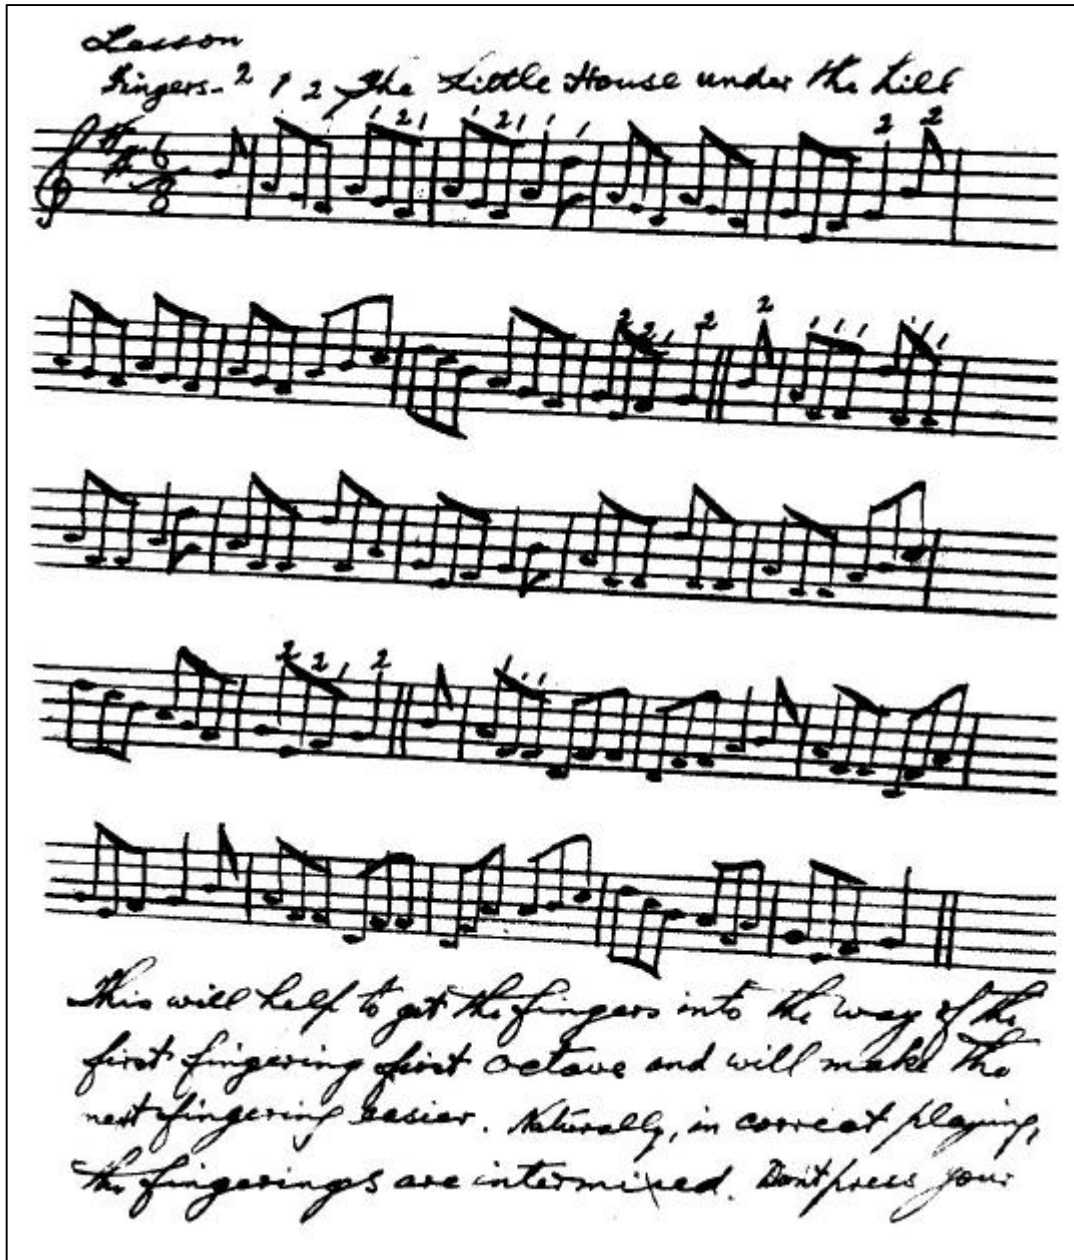 Lesson
Fingers - 2 1 2 The Little House under the Hill
1 2 1 1 2 1 1 1 2 2
6
8
2 2 1 2 2 1 1 1 1 1 1
2 2 1 2 1 1 1
This will help to get the fingers into the way of the
first fingering first octave and will make the
next fingering easier. Naturally, in correct playing,
the fingerings are intermixed. Don't press your